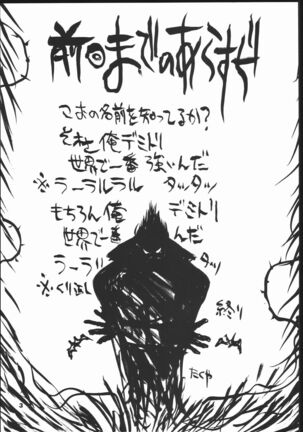 前回までのあらすじ
この名前を知ってるか?
それさ俺デミトリ
世界で一番 強いんだ
※ラーラルラル タッタッ
もちろん俺 デミトリ
世界で一番 んだ
ラーラル タッ
※くりかえし
終り
たくや
3